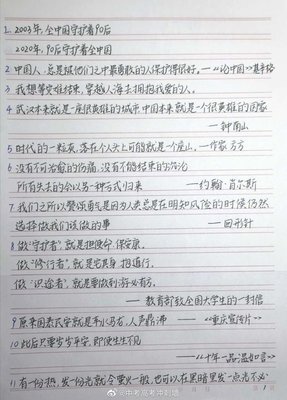 1. 2003年,全中国守护着90后
2020年,90后守护着全中国
2 中国人,总是被他们之中最勇敢的人保护得很好。——《论中国》基辛格
3 我想等灾难结束,穿越人海去拥抱我爱的人。
4 武汉本来就是一座很英雄的城市 中国本来就是个很英雄的国家
——钟南山
5 时代的一粒灰,落在个人头上可能就是一座山。—作家 方方
6 没有不可治愈的伤痛,没有不能结束的沉沦
所有失去的会以另一种方式归来 ——约翰·肖尔斯
7 我们之所以赞颂勇气是因为人类总是在明知风险的时候仍然
选择做我们该做的事 ——回形针
8 做"守护者",就是担使命、保安康。
做"修行者",就是宅其身、相道行。
做"识途者",就是要做到游必有方。
—— 教育部致全国大学生的一封信
9 原来国泰民安就是车水马龙,人声鼎沸 ——《重庆宣传片》
10 此后只要岁岁平安,即使生生不见
——《十年一品温如言》
11 有一份热,发一份光就令萤火一般,也可以在黑暗里发一点光不必
@中考高考冲刺墙